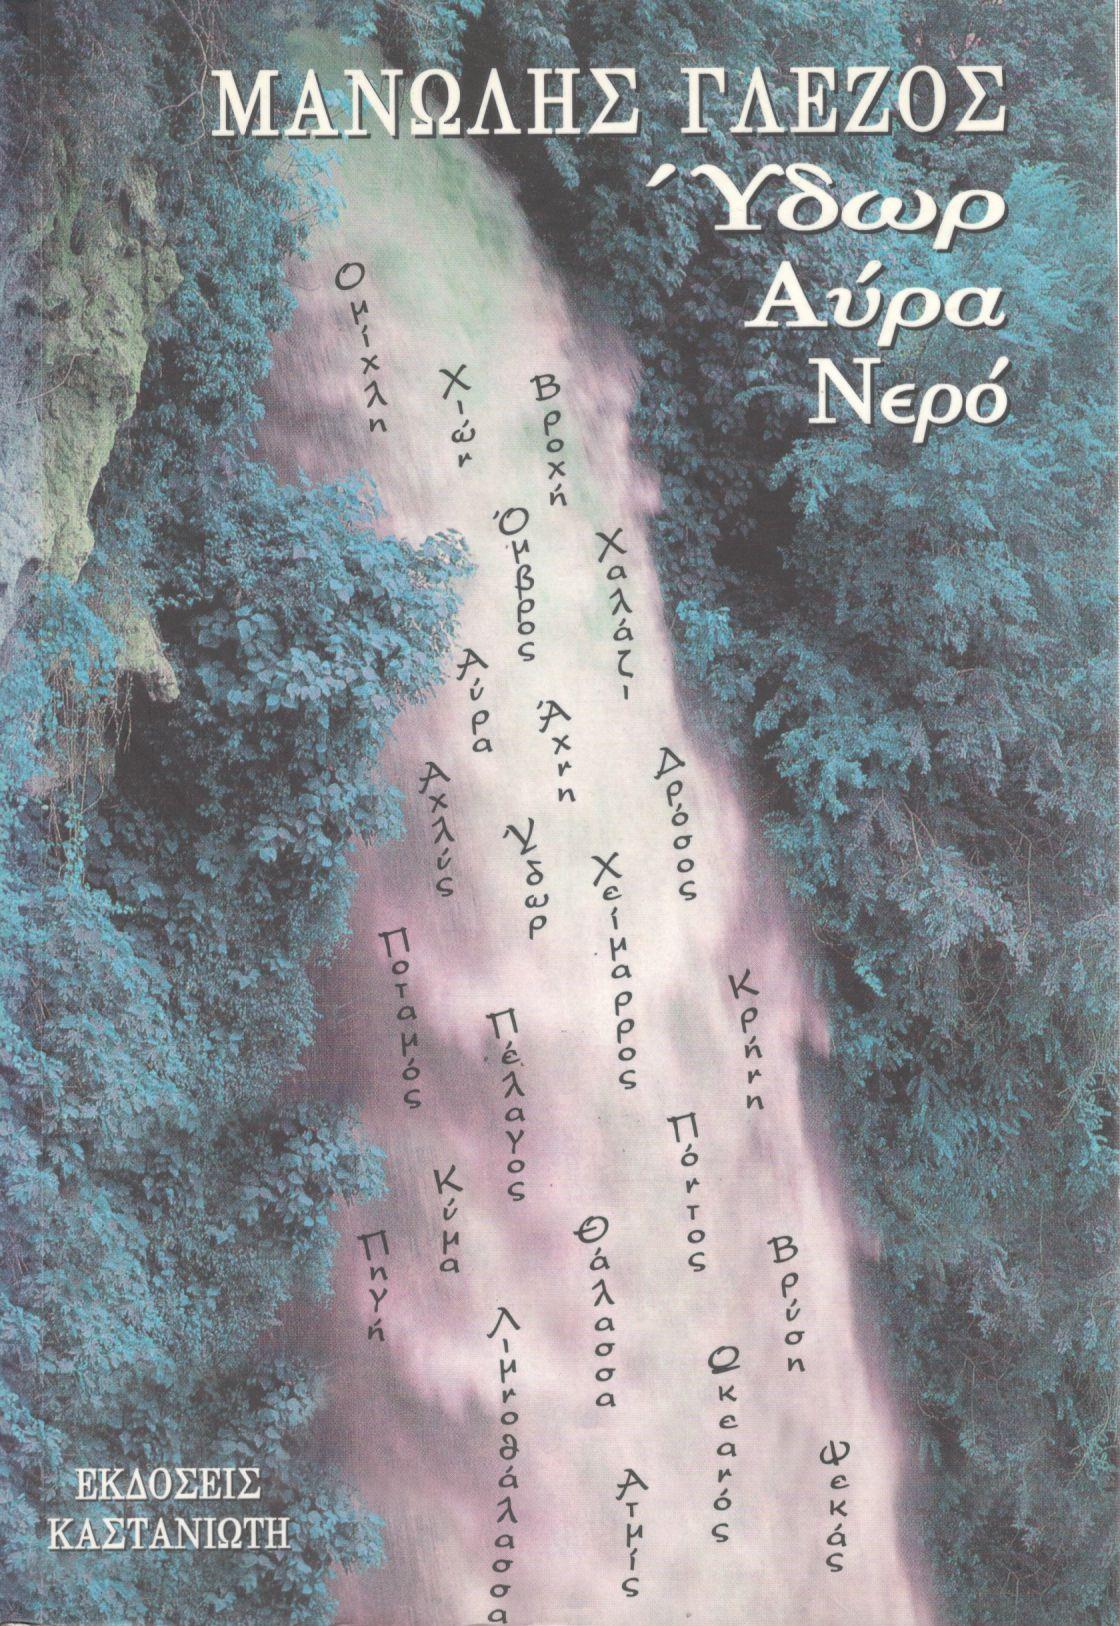 ΜΑΝΩΛΗΣ ΓΛΕΖΟΣ
Ύδωρ
Αύρα
Νερό
Ομίχλη
Χιών
Βροχή
Όμβρος
Χαλάζι
Αύρα
Άχνη
Δρόσος
Αχλύς
Υδωρ
Χείμαρρος
Ποταμός
Κρήνη
Πέλαγος
Πόντος
Κύμα
Θάλασσα
Πηγή
Βρύση
Λιμνοθάλασσα
Ωκεανός
Ψεκάς
Ατμίς
ΕΚΔΟΣΕΙΣ
ΚΑΣΤΑΝΙΩΤΗ